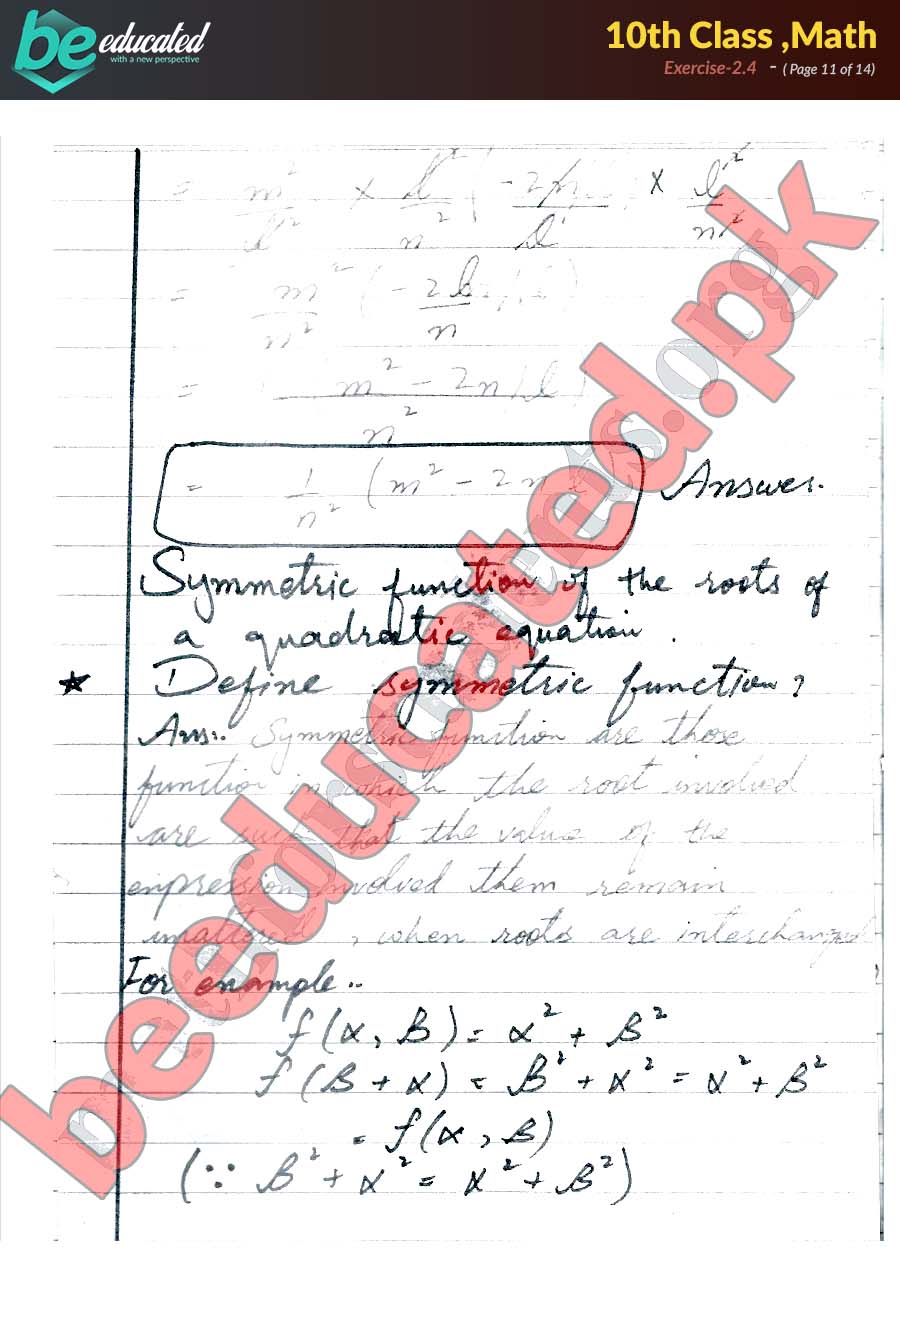 be educated
with a new perspective
10th Class ,Math
Exercise-2.4 - ( Page 11 of 14)
= m² / l² × l² / n² ( -2n / l × l² / n²
= m² / n² ( -2l / n )
= m² - 2n l / n²
= 1 / n² ( m² - 2n l Answer.
Symmetric function of the roots of
a quadratic equation.
Define symmetric function?
Ans:. Symmetric function are those
function in which the root involved
are such that the value of the
enpression involved them remain
unaltered, when roots are interchanged
For enample..
f(α, β) = α² + β²
f(β + α) = β² + α² = α² + β²
= f(α, β)
(∵ β² + α² = α² + β²)
beeducated.pk